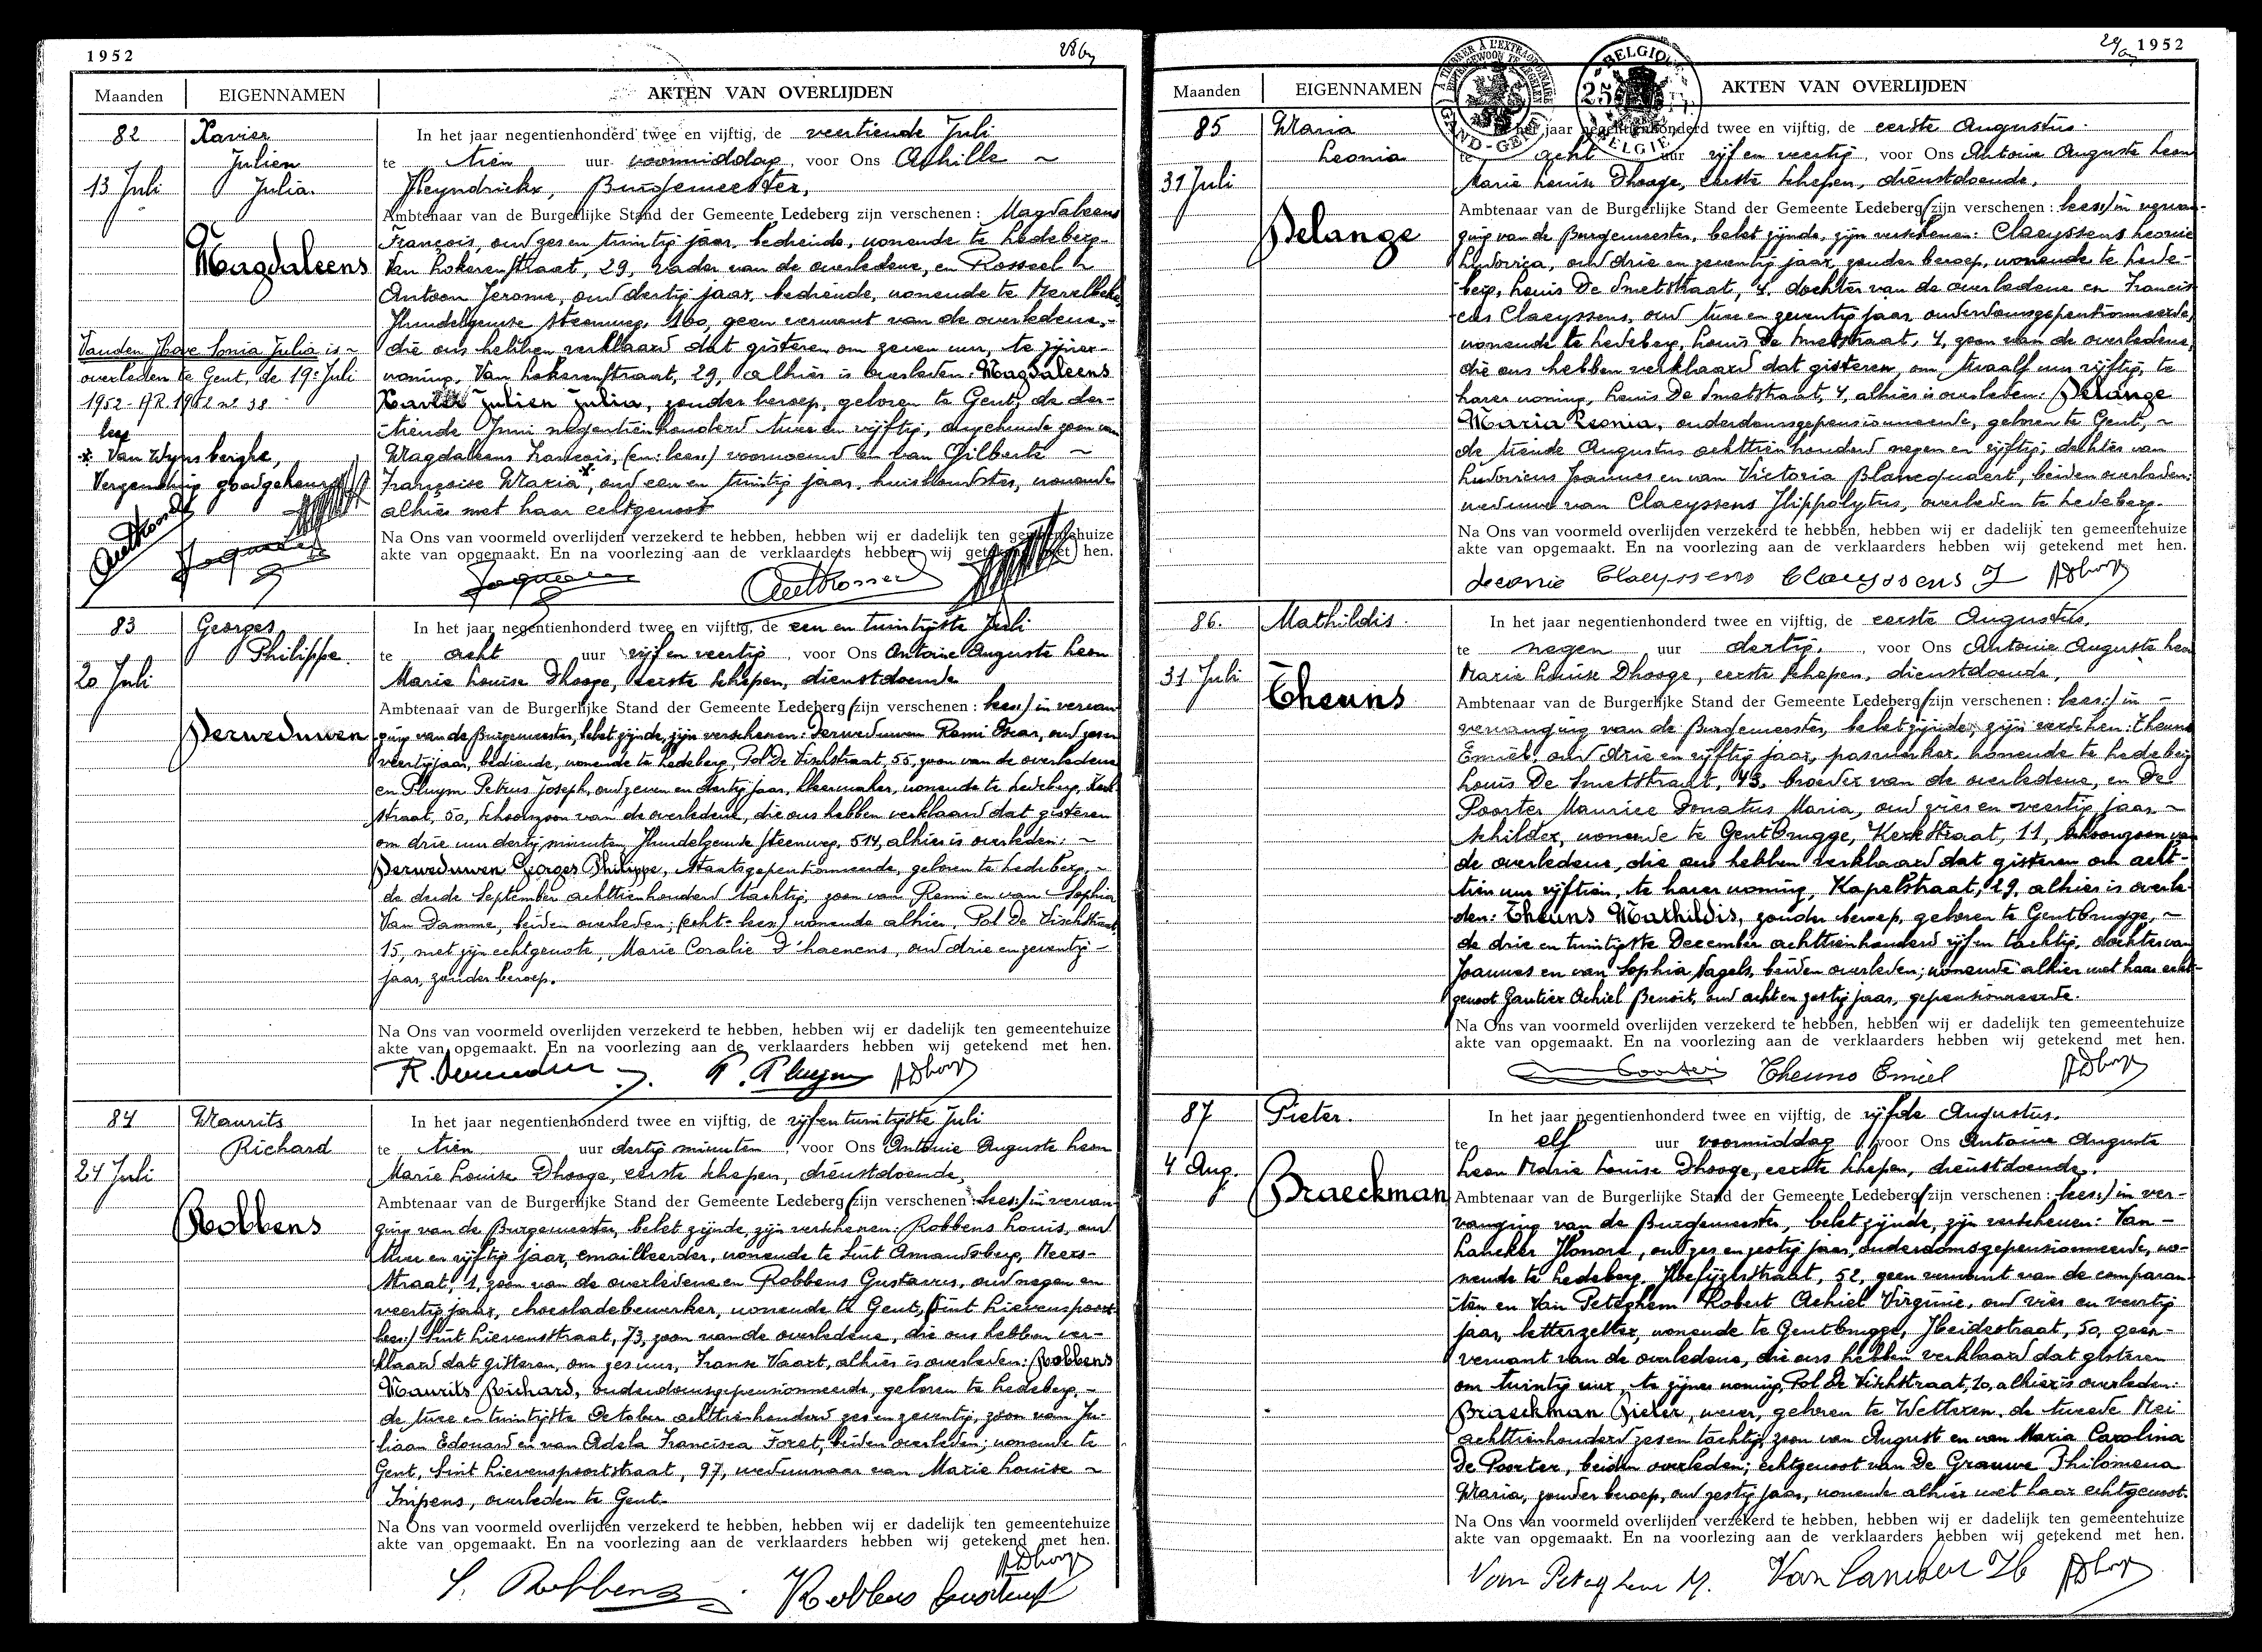 1952
Maanden EIGENNAMEN AKTEN VAN OVERLIJDEN
82 Xavier In het jaar negentienhonderd twee en vijftig, de veertiende Juli
Julien te tien uur voormiddag, voor Ons Achille ~
13 Juli Julia. Heyndrickx, Burgemeester,
Ambtenaar van de Burgerlijke Stand der Gemeente Ledeberg zijn verschenen : Magdaleens
Magdaleens
François, oud zes en twintig jaar, bediende, wonende te Ledeberg
Van Lokerenstraat, 29, vader van de overledene, en Rosseel
Antoon Jerome, oud dertig jaar, bediende, wonende te Merelbeke,
Hundelgemse steenweg, 160, geen verwant van de overledene,
die ons hebben verklaard dat gisteren om zeven uur, te zijner
woning, Van Lokerenstraat, 29, alhier is overleden: Magdaleens
Xavier Julien Julia, zonder beroep, geboren te Gent, de der-
tiende Juni negentienhonderd twee en vijftig, zoon van
Magdaleens François, (en: lees:) voornoemd en van Gilberte ~
Françoise Maria*, oud een en twintig jaar, huishoudster, wonende
alhier met haar echtgenoot
Vanden Hove Sonia Julia is ~
overleden te Gent, de 19e Juli
1952 - AR 1952 nr 38
lees
* Van Wynsberghe,
Verzending goedgekeurd
Na Ons van voormeld overlijden verzekerd te hebben, hebben wij er dadelijk ten gemeentehuize
akte van opgemaakt. En na voorlezing aan de verklaarders hebben wij getekend met hen.
83 Georges In het jaar negentienhonderd twee en vijftig, de een en twintigste Juli
Philippe. te acht uur vijf en veertig, voor Ons Antoine Auguste Leon
20 Juli Marie Louise Dhooge, eerste schepen, dienstdoende
Ambtenaar van de Burgerlijke Stand der Gemeente Ledeberg (zijn verschenen : lees:) in vervan
Derweduwen ging van de Burgemeester, belet zijnde, zijn verschenen: Derweduwen Remi Oscar, oud zes en
veertig jaar, bediende, wonende te Ledeberg, Pol De Vischstraat, 55, zoon van de overledene
en Pluym Petrus Joseph, oud zeven en dertig jaar, kleermaker, wonende te Ledeberg, Kerk
straat, 50, schoonzoon van de overledene, die ons hebben verklaard dat gisteren
om drie uur dertig minuten, Hundelgemse steenweg, 514, alhier is overleden: ~
Derweduwen Georges Philippe, staatsgepensionneerde, geboren te Ledeberg, ~
de derde September achttienhonderd tachtig, zoon van Remi en van Sophia
Van Damme, beiden overleden; (echt- lees:) wonende alhier, Pol De Vischstraat,
15, met zijn echtgenote, Marie Coralie D'haenens, oud drie en zeventig -
jaar, zonder beroep.
Na Ons van voormeld overlijden verzekerd te hebben, hebben wij er dadelijk ten gemeentehuize
akte van opgemaakt. En na voorlezing aan de verklaarders hebben wij getekend met hen.
P. Pluym ADhooge
84 Maurits In het jaar negentienhonderd twee en vijftig, de vijf en twintigste Juli
Richard te tien uur dertig minuten, voor Ons Antoine Auguste Leon
24 Juli Marie Louise Dhooge, eerste schepen, dienstdoende,
Ambtenaar van de Burgerlijke Stand der Gemeente Ledeberg (zijn verschenen : lees:) in vervan-
Robbens ging van de Burgemeester, belet zijnde, zijn verschenen: Robbens Louis, oud
twee en vijftig jaar, emailleerder, wonende te Sint Amandsberg, Meers-
straat, 1, zoon van de overledene en Robbens Gustavus, oud negen en
veertig jaar, chocoladebewerker, wonende te Gent, (Sint Lievenspoort
lees:) Sint Lievensstraat, 73, zoon van de overledene, die ons hebben ver-
klaard dat gisteren, om zes uur, Franse Vaart, alhier is overleden: Robbens
Maurits Richard, ouderdomsgepensionneerde, geboren te Ledeberg, -
de twee en twintigste October achttienhonderd zes en zeventig, zoon van Ju-
liaan Edouard en van Adela Francisca Foret, beiden overleden; wonende te
Gent, Sint Lievenspoortstraat, 97, weduwnaar van Marie Louise ~
Impens, overleden te Gent.
Na Ons van voormeld overlijden verzekerd te hebben, hebben wij er dadelijk ten gemeentehuize
akte van opgemaakt. En na voorlezing aan de verklaarders hebben wij getekend met hen.
ADhooge
L. Robbens Robbens Gustaaf
1952
BELGIQUE BELGIË
GAND-GENT
25
Maanden EIGENNAMEN AKTEN VAN OVERLIJDEN
85 Maria In het jaar negentienhonderd twee en vijftig, de eerste Augustus.
Leonia te acht uur vijf en veertig, voor Ons Antoine Auguste Leon
31 Juli Marie Louise Dhooge, eerste schepen, dienstdoende,
Ambtenaar van de Burgerlijke Stand der Gemeente Ledeberg (zijn verschenen : lees:) in vervan-
Delange ging van de Burgemeester, belet zijnde, zijn verschenen: Claeyssens Leonie
Ludovica, oud drie en zeventig jaar, zonder beroep, wonende te Lede-
berg, Louis De Smetstraat, 4, dochter van de overledene en Francis-
cus Claeyssens, oud twee en zeventig jaar, ouderdomsgepensionneerde,
wonende te Ledeberg, Louis De Smetstraat, 4, zoon van de overledene,
die ons hebben verklaard dat gisteren, om twaalf uur vijftig, te
harer woning, Louis De Smetstraat, 4, alhier is overleden: Delange
Maria Leonia, ouderdomsgepensionneerde, geboren te Gent, ~
de tiende Augustus achttienhonderd negen en vijftig, dochter van
Ludovicus Joannes en van Victoria Blancquaert, beiden overleden;
weduwe van Claeyssens Hippolytus, overleden te Ledeberg.
Na Ons van voormeld overlijden verzekerd te hebben, hebben wij er dadelijk ten gemeentehuize
akte van opgemaakt. En na voorlezing aan de verklaarders hebben wij getekend met hen.
Leonie Claeyssens Claeyssens F ADhooge
86. Mathildis. In het jaar negentienhonderd twee en vijftig, de eerste Augustus,
te negen uur dertig, voor Ons Antoine Auguste Leon
31 Juli Marie Louise Dhooge, eerste schepen, dienstdoende,
Theuns Ambtenaar van de Burgerlijke Stand der Gemeente Ledeberg (zijn verschenen : lees:) in -
vervanging van de Burgemeester, belet zijnde, zijn verschen: Theuns
Emiel, oud drie en vijftig jaar, paswerker, wonende te Ledeberg
Louis De Smetstraat, 43, broeder van de overledene, en De
Poorter Maurice Donatus Maria, oud vier en veertig jaar, ~
schilder, wonende te Gentbrugge, Kerkstraat, 11, schoonzoon van
de overledene, die ons hebben verklaard dat gisteren om acht-
tien uur vijftien, te harer woning, Kapelstraat, 29, alhier is overle-
den: Theuns Mathildis, zonder beroep, geboren te Gentbrugge, ~
de drie en twintigste December achttienhonderd vijf en tachtig, dochter van
Joannes en van Sophia Nagels, beiden overleden; wonende alhier met haar echt-
genoot Gautier Achiel Benoit, oud acht en zestig jaar, gepensionneerde.
Na Ons van voormeld overlijden verzekerd te hebben, hebben wij er dadelijk ten gemeentehuize
akte van opgemaakt. En na voorlezing aan de verklaarders hebben wij getekend met hen.
Theuns Emiel ADhooge
87 Pieter. In het jaar negentienhonderd twee en vijftig, de vijfde Augustus.
te elf uur voormiddag, voor Ons Antoine Auguste
4 Aug. Leon Marie Louise Dhooge, eerste schepen, dienstdoende,
Braeckman Ambtenaar van de Burgerlijke Stand der Gemeente Ledeberg (zijn verschenen : lees:) in ver-
vanging van de Burgemeester, belet zijnde, zijn verschenen: Van -
Lancker Honoré, oud zes en zestig jaar, ouderdomsgepensionneerde, wo-
nende te Ledeberg, Hoefijzelstraat, 52, geen verwant van de comparan
ten en Van Peteghem Robert Achiel Virginie, oud vier en veertig
jaar, letterzetter, wonende te Gentbrugge, Heidestraat, 50, geen -
verwant van de overledene, die ons hebben verklaard dat gisteren
om twintig uur, te zijner woning, Pol De Vischstraat, 20, alhier is overleden:
Braeckman Pieter, wever, geboren te Wetteren, de tweede Mei
achttienhonderd zes en tachtig, zoon van August en van Maria Carolina
De Poorter, beiden overleden; echtgenoot van De Grauwe Philomena
Maria, zonder beroep, oud zestig jaar, wonende alhier met haar echtgenoot.
Na Ons van voormeld overlijden verzekerd te hebben, hebben wij er dadelijk ten gemeentehuize
akte van opgemaakt. En na voorlezing aan de verklaarders hebben wij getekend met hen.
Van Peteghem Van Lancker H ADhooge